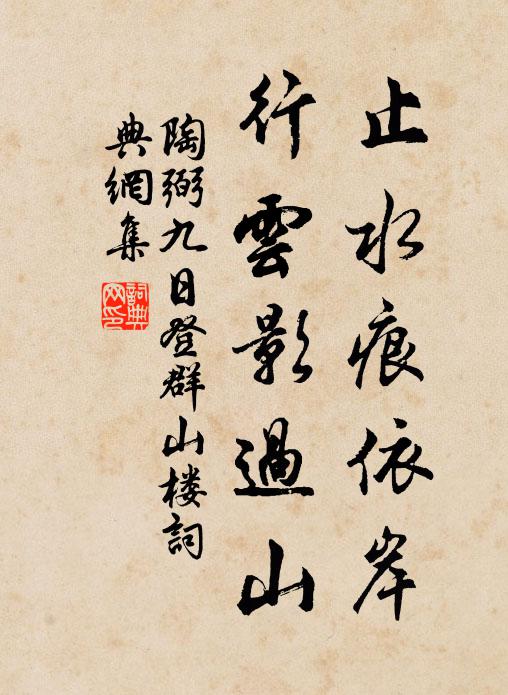 止水痕依岸
行雲影過山
陶弼九日登群山楼詞
典網集
詞典网印